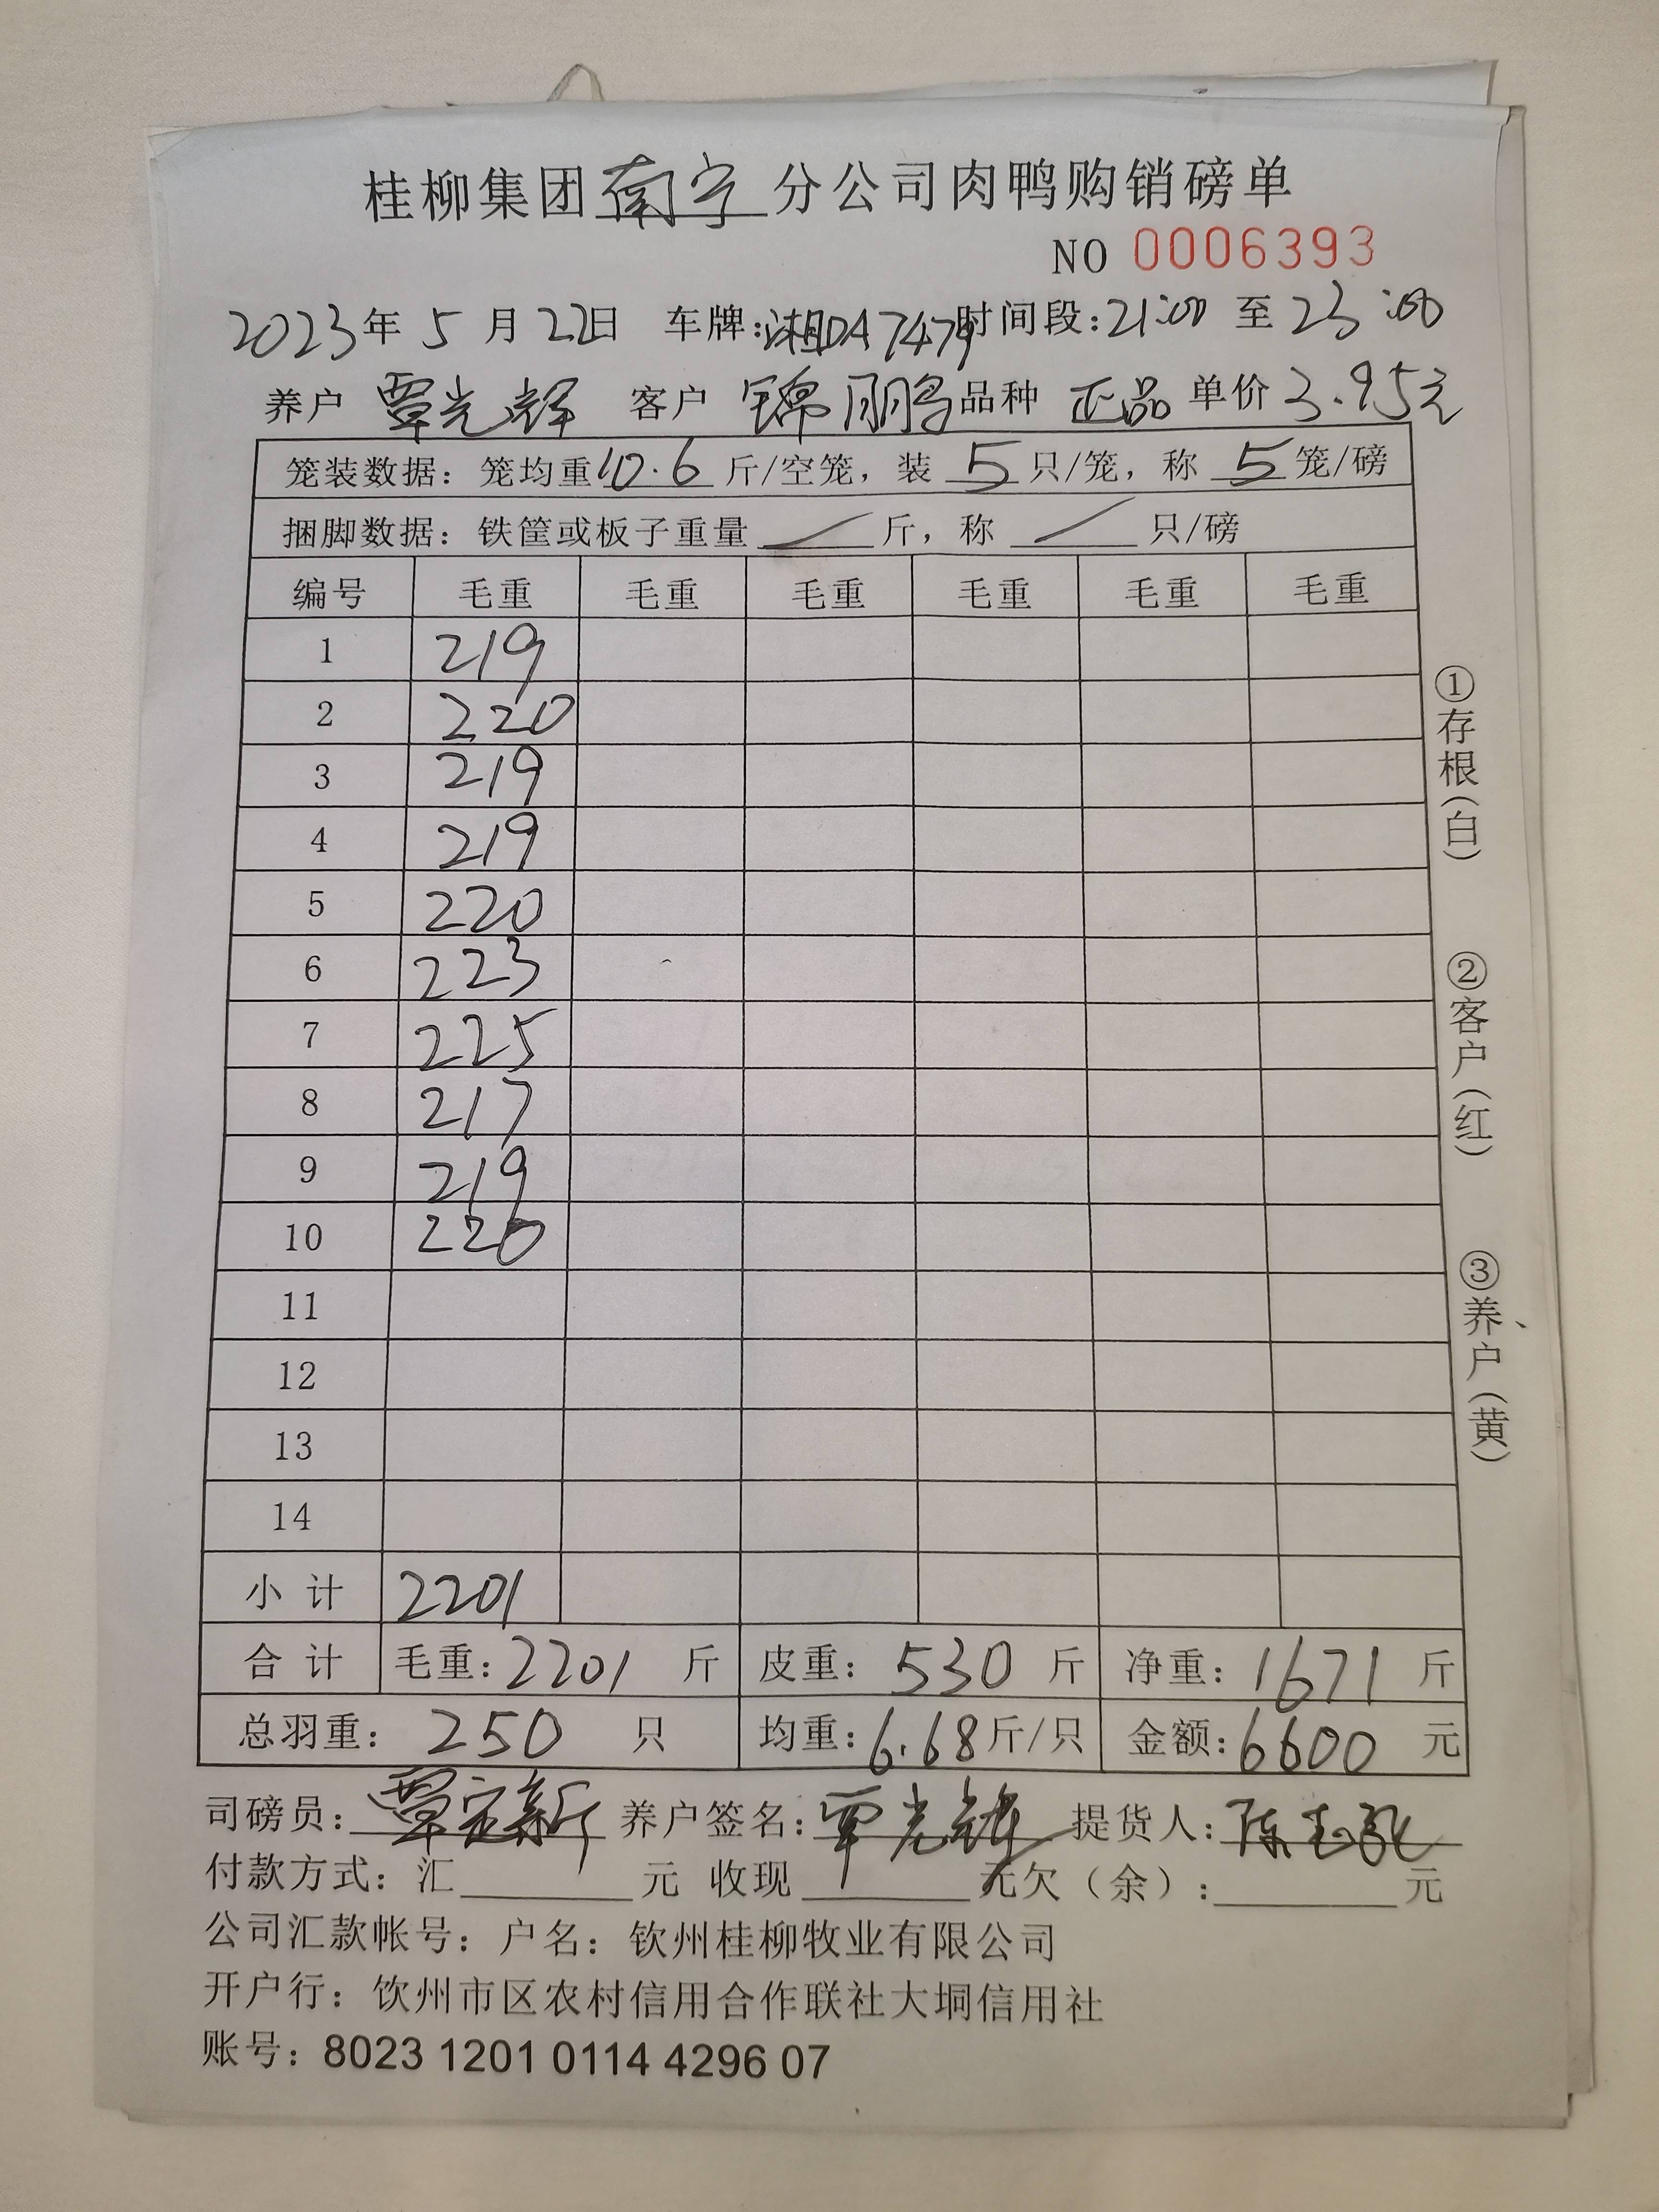 桂柳集团南宁分公司肉鸭购销磅单
NO 0006393
2023年5月22日 车牌:湘DA7479 时间段:21:00 至 23:00
养户 覃光辉 客户 锦鹏 品种 正品 单价 3.95元
笼装数据：笼均重10.6斤/空笼，装 5 只/笼，称 5 笼/磅
捆脚数据：铁筐或板子重量 / 斤，称 / 只/磅
编号 毛重 毛重 毛重 毛重 毛重 毛重
1 219
2 220
3 219
4 219
5 220
6 223
7 225
8 217
9 219
10 220
11
12
13
14
小计 2201
合计 毛重：2201 斤 皮重：530 斤 净重：1671 斤
总羽重：250 只 均重：6.68斤/只 金额：6600 元
司磅员：覃定新 养户签名：覃光辉 提货人：陈
付款方式：汇 元 收现 元欠（余）： 元
公司汇款帐号：户名：钦州桂柳牧业有限公司
开户行：钦州市区农村信用合作联社大垌信用社
账号：8023 1201 0114 4296 07
①存根（白）
②客户（红）
③养户（黄）